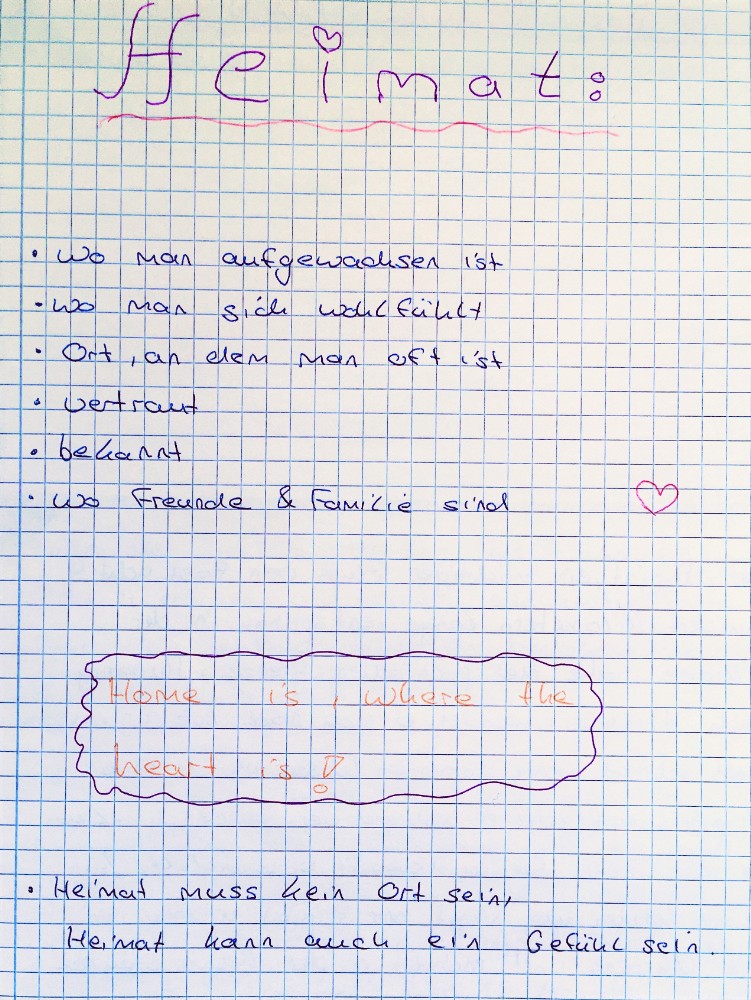 Heimat:
• wo man aufgewachsen ist
• wo man sich wohlfühlt
• Ort, an dem man oft ist
• vertraut
• bekannt
• wo Freunde & Familie sind
Home is, where the
heart is!
• Heimat muss kein Ort sein,
Heimat kann auch ein Gefühl sein.